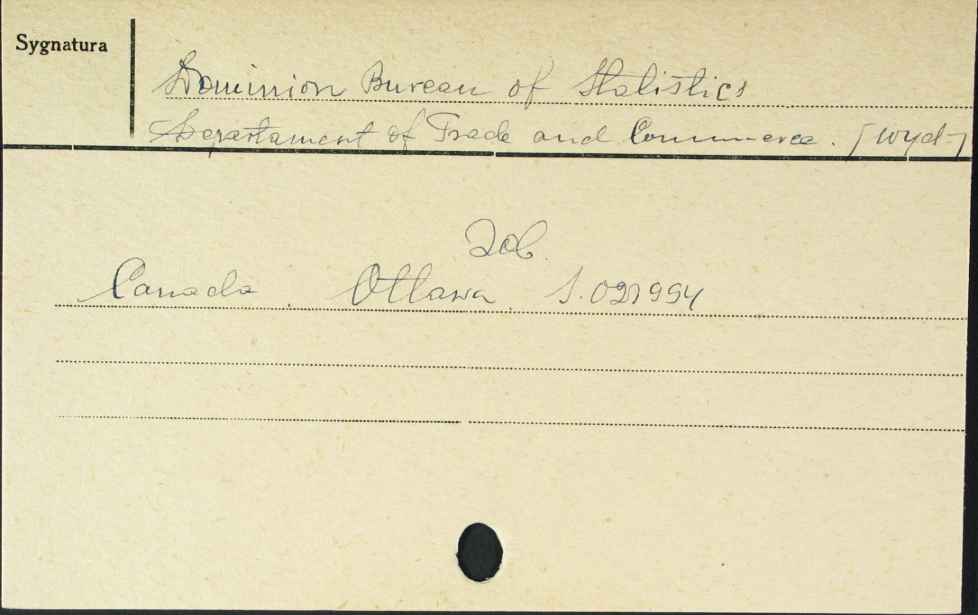 Sygnatura
Dominion Bureau of Statistics
Departament of Trade and Commerce. [wyd.]
Zob.
Canada. Ottawa S. 021994